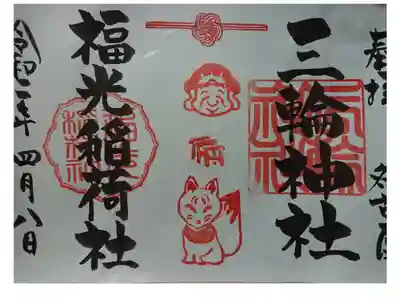 奉拝 名古屋
三輪神社
福光稲荷社
令和二年四月八日